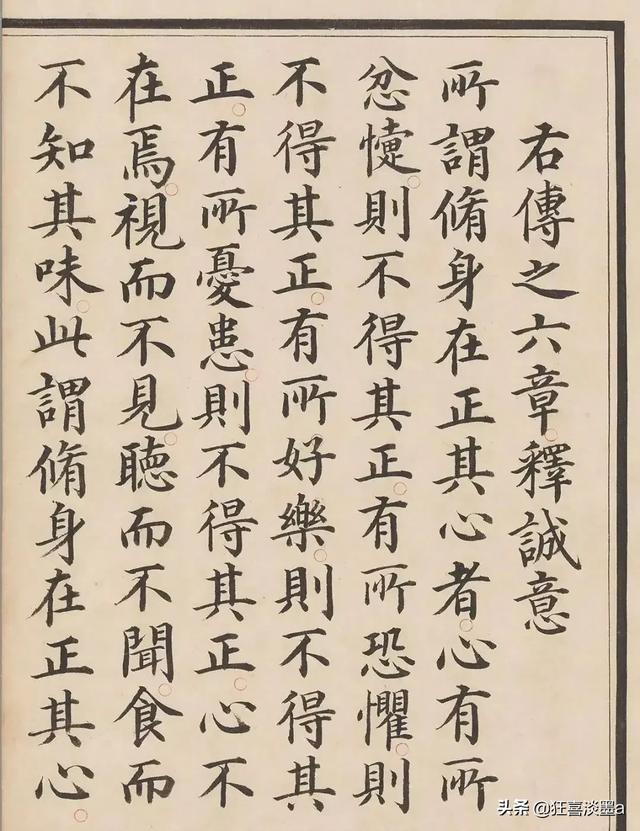 右傳之六章。釋誠意
所謂脩身在正其心者。心有所
忿懥。則不得其正。有所恐懼。則
不得其正。有所好樂。則不得其
正。有所憂患。則不得其正。心不
在焉。視而不見。聽而不聞。食而
不知其味。此謂脩身在正其心。
头条 @狂喜淡墨a